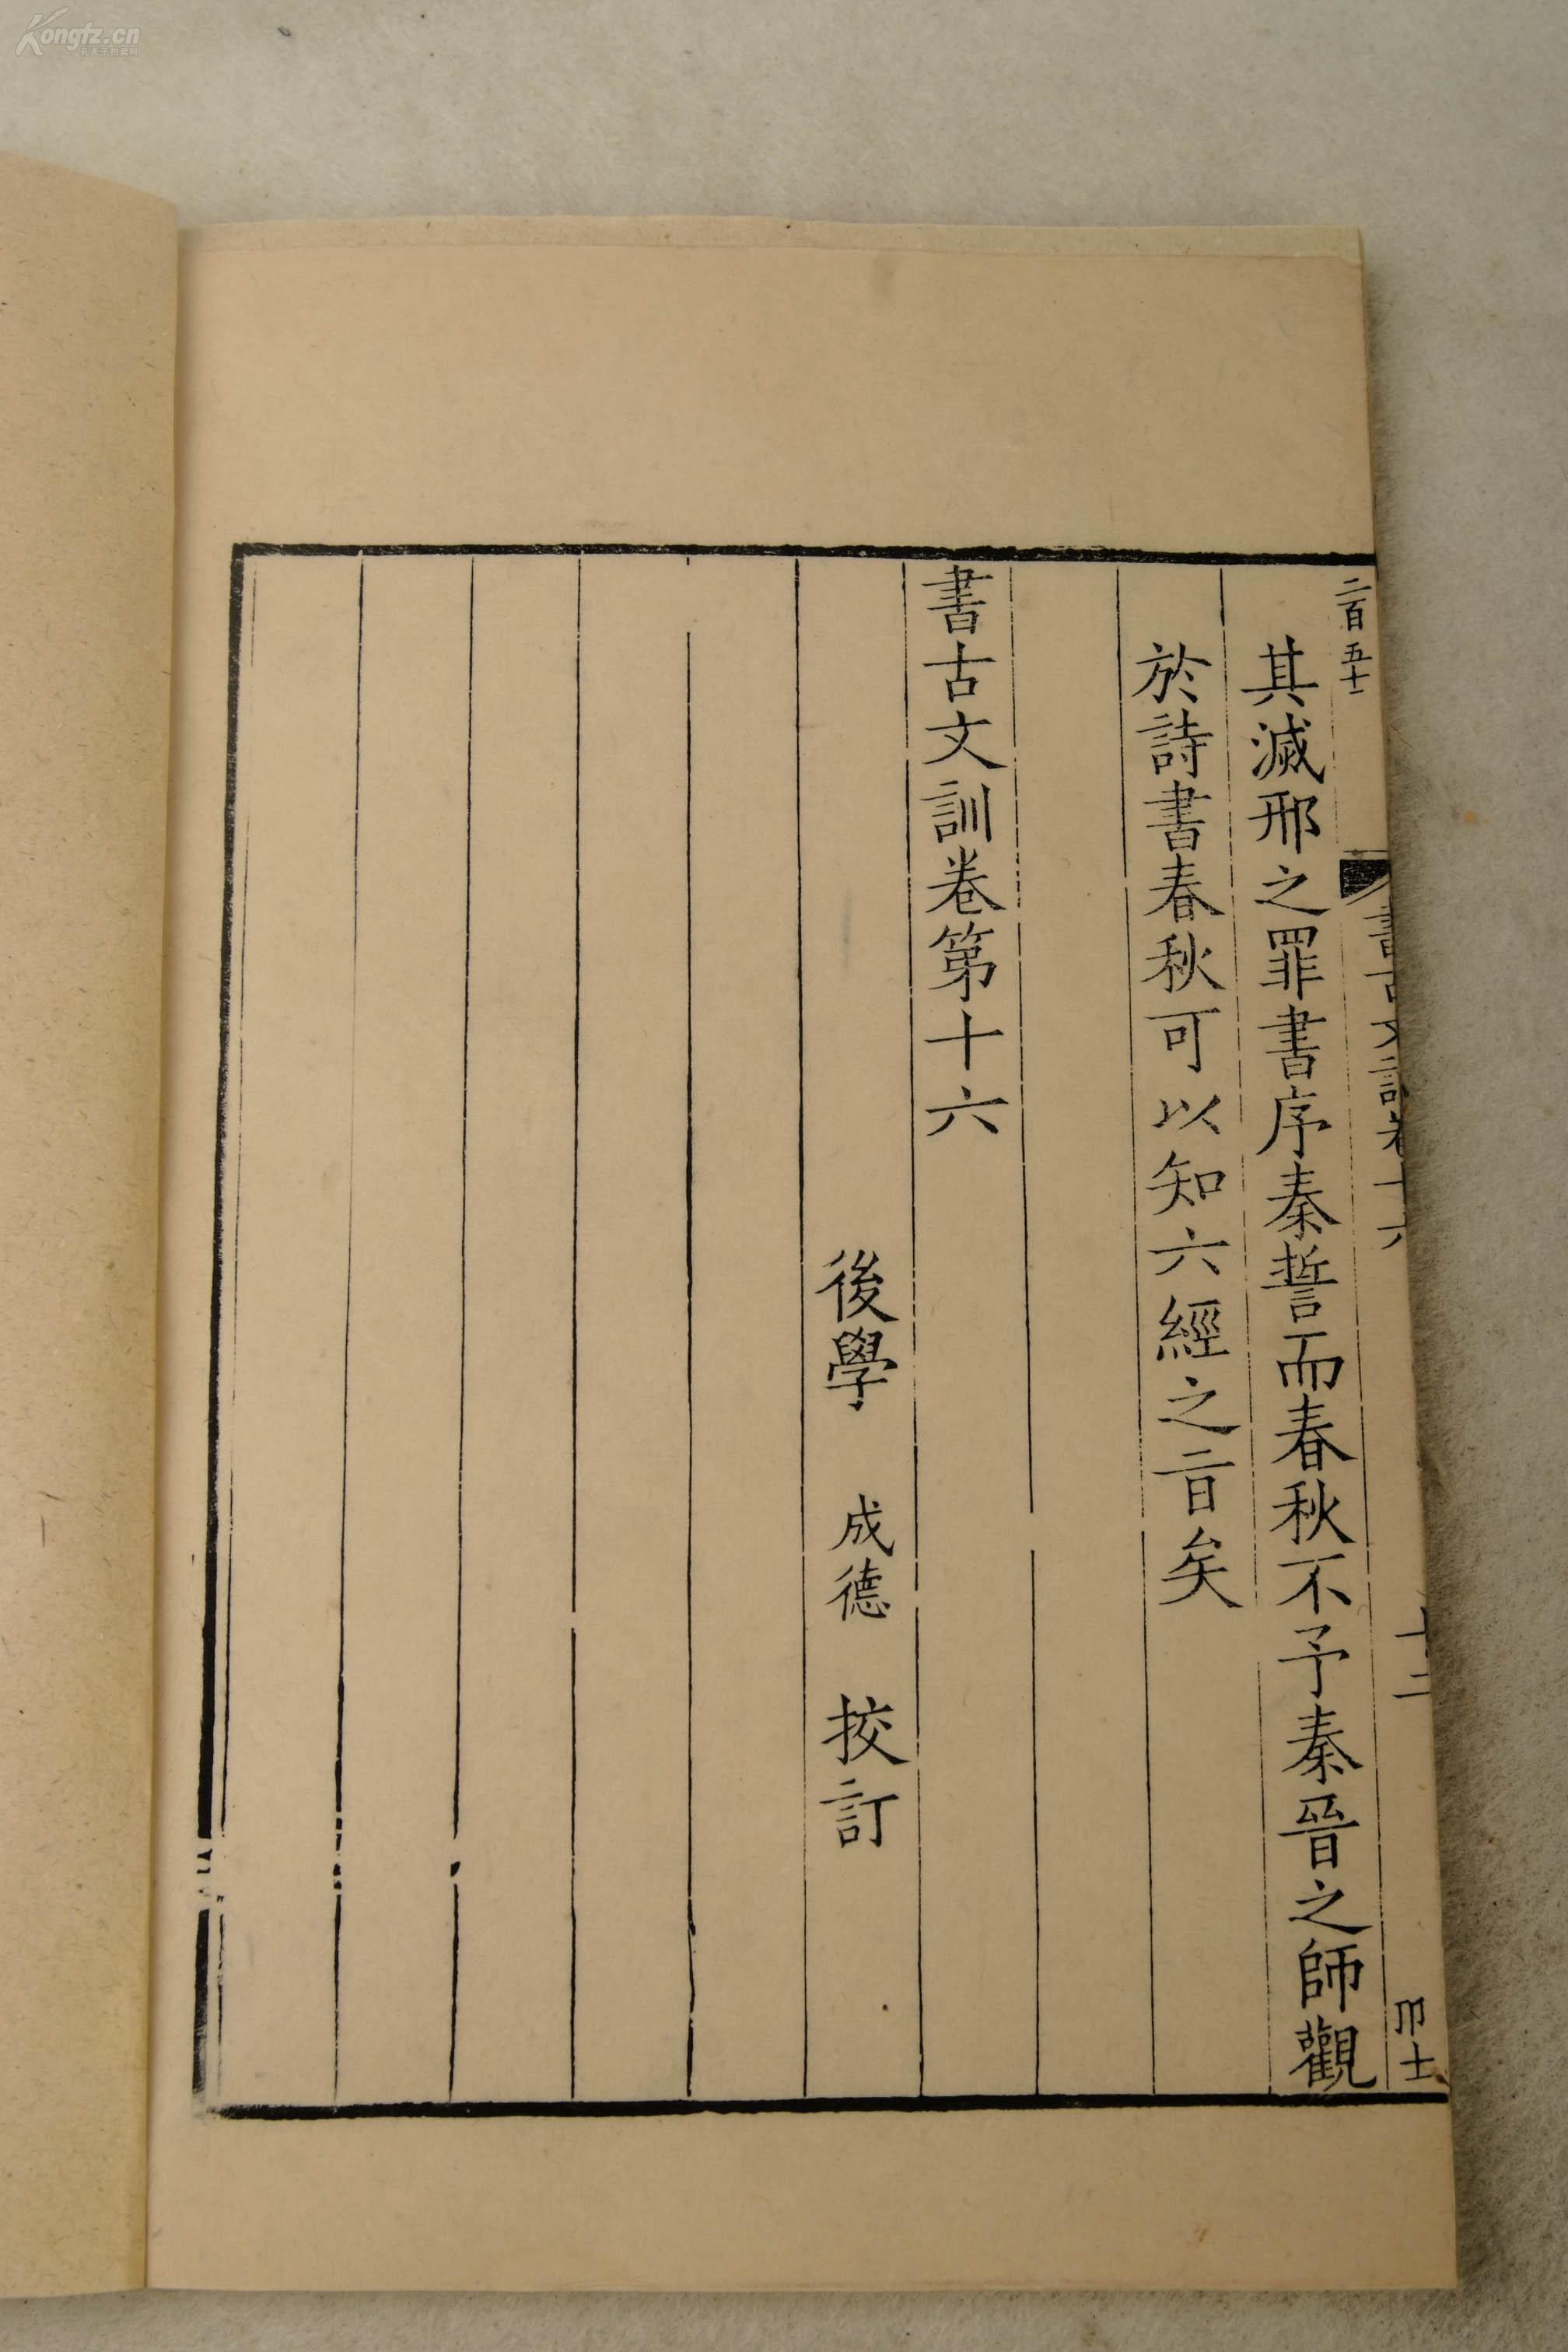 Kongfz.cn
二百五十一
書古文訓卷十六
十二
卭士
其滅邢之罪書序秦誓而春秋不予秦晉之師觀
於詩書春秋可以知六經之旨矣
書古文訓卷第十六
後學 成德 挍訂